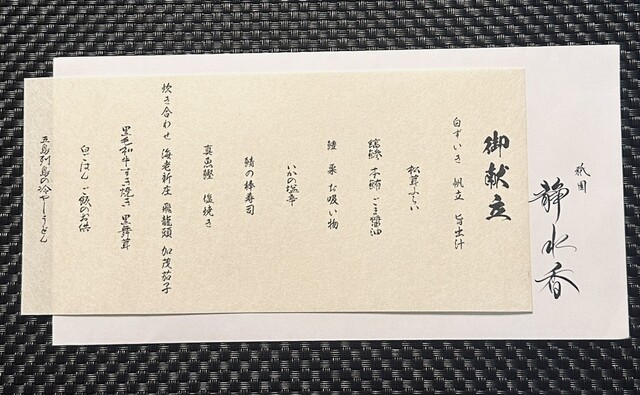 祇園
静水香
御献立
白ずいき 帆立 旨出汁
松茸ふらい
縞鯵 本鮪 ごま醤油
鱧 東 お吸い物
いかの塩辛
鯖の棒寿司
真魚鰹 塩焼き
炊き合わせ 海老新庄 飛龍頭 加茂茄子
黒毛和牛すき焼き 黒舞茸
白ごはん ご飯のお供
五島列島の冷やしうどん